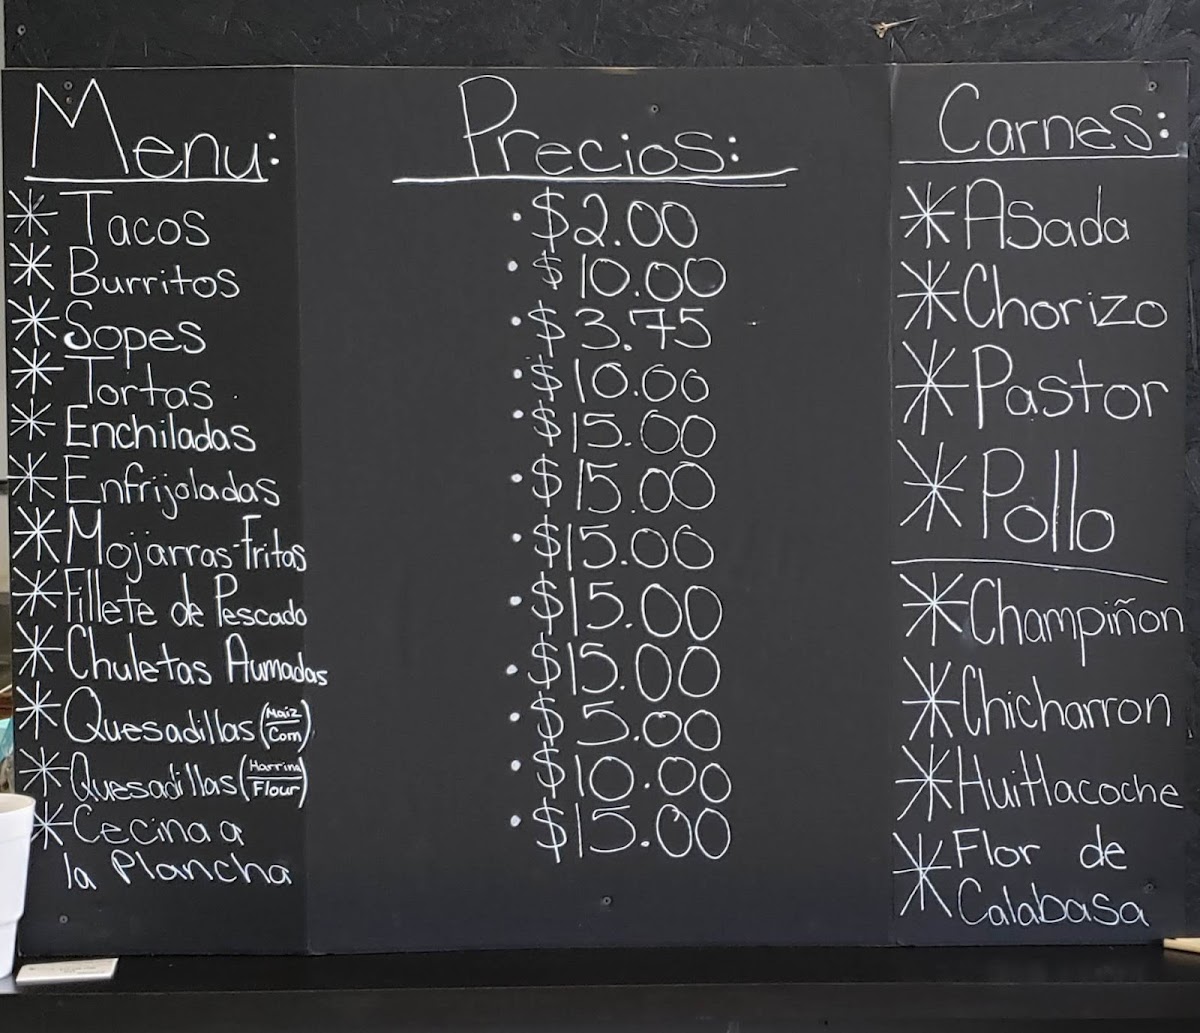 Menu:
* Tacos
* Burritos
* Sopes
* Tortas
* Enchiladas
* Enfrijoladas
* Mojarras-Fritas
* Fillete de Pescado
* Chuletas Aumadas
* Quesadillas (Maíz/Corn)
* Quesadillas (Harrina/Flour)
* Cecina a
la Plancha
Precios:
• $2.00
• $10.00
• $3.75
• $10.00
• $15.00
• $15.00
• $15.00
• $15.00
• $15.00
• $5.00
• $10.00
• $15.00
Carnes:
* Asada
* Chorizo
* Pastor
* Pollo
* Champiñon
* Chicharron
* Huitlacoche
* Flor de
Calabasa